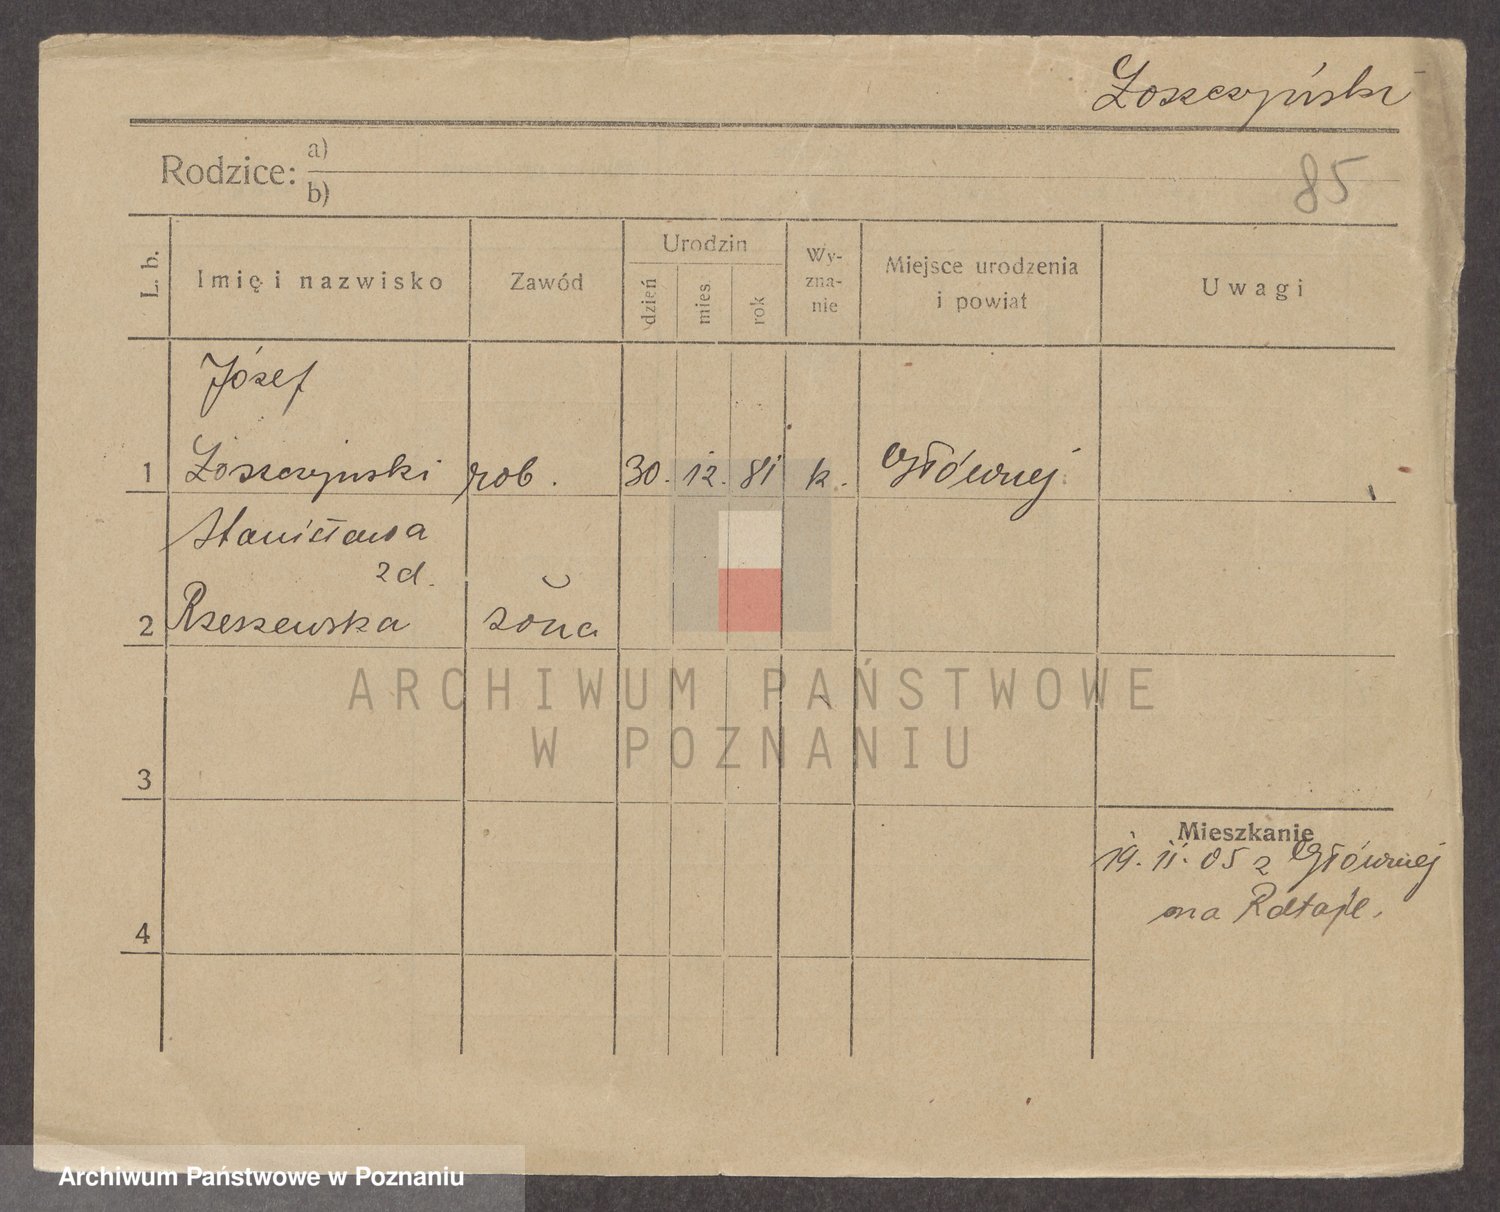 Łoszczyński
Rodzice: a)
b)
85
L. b.
Imię i nazwisko
Zawód
Urodzin
dzień
mies.
rok
Wy-
zna-
nie
Miejsce urodzenia
i powiat
Uwagi
Józef
1 Łoszczynski rob. 30. 12. 81 k. Głównej
Stanisława
zd.
2 Rzeszewska żona
ARCHIWUM PAŃSTWOWE
W POZNANIU
3
Mieszkanie
19. 11. 05 z Głównej
na Rataje.
4
Archiwum Państwowe w Poznaniu